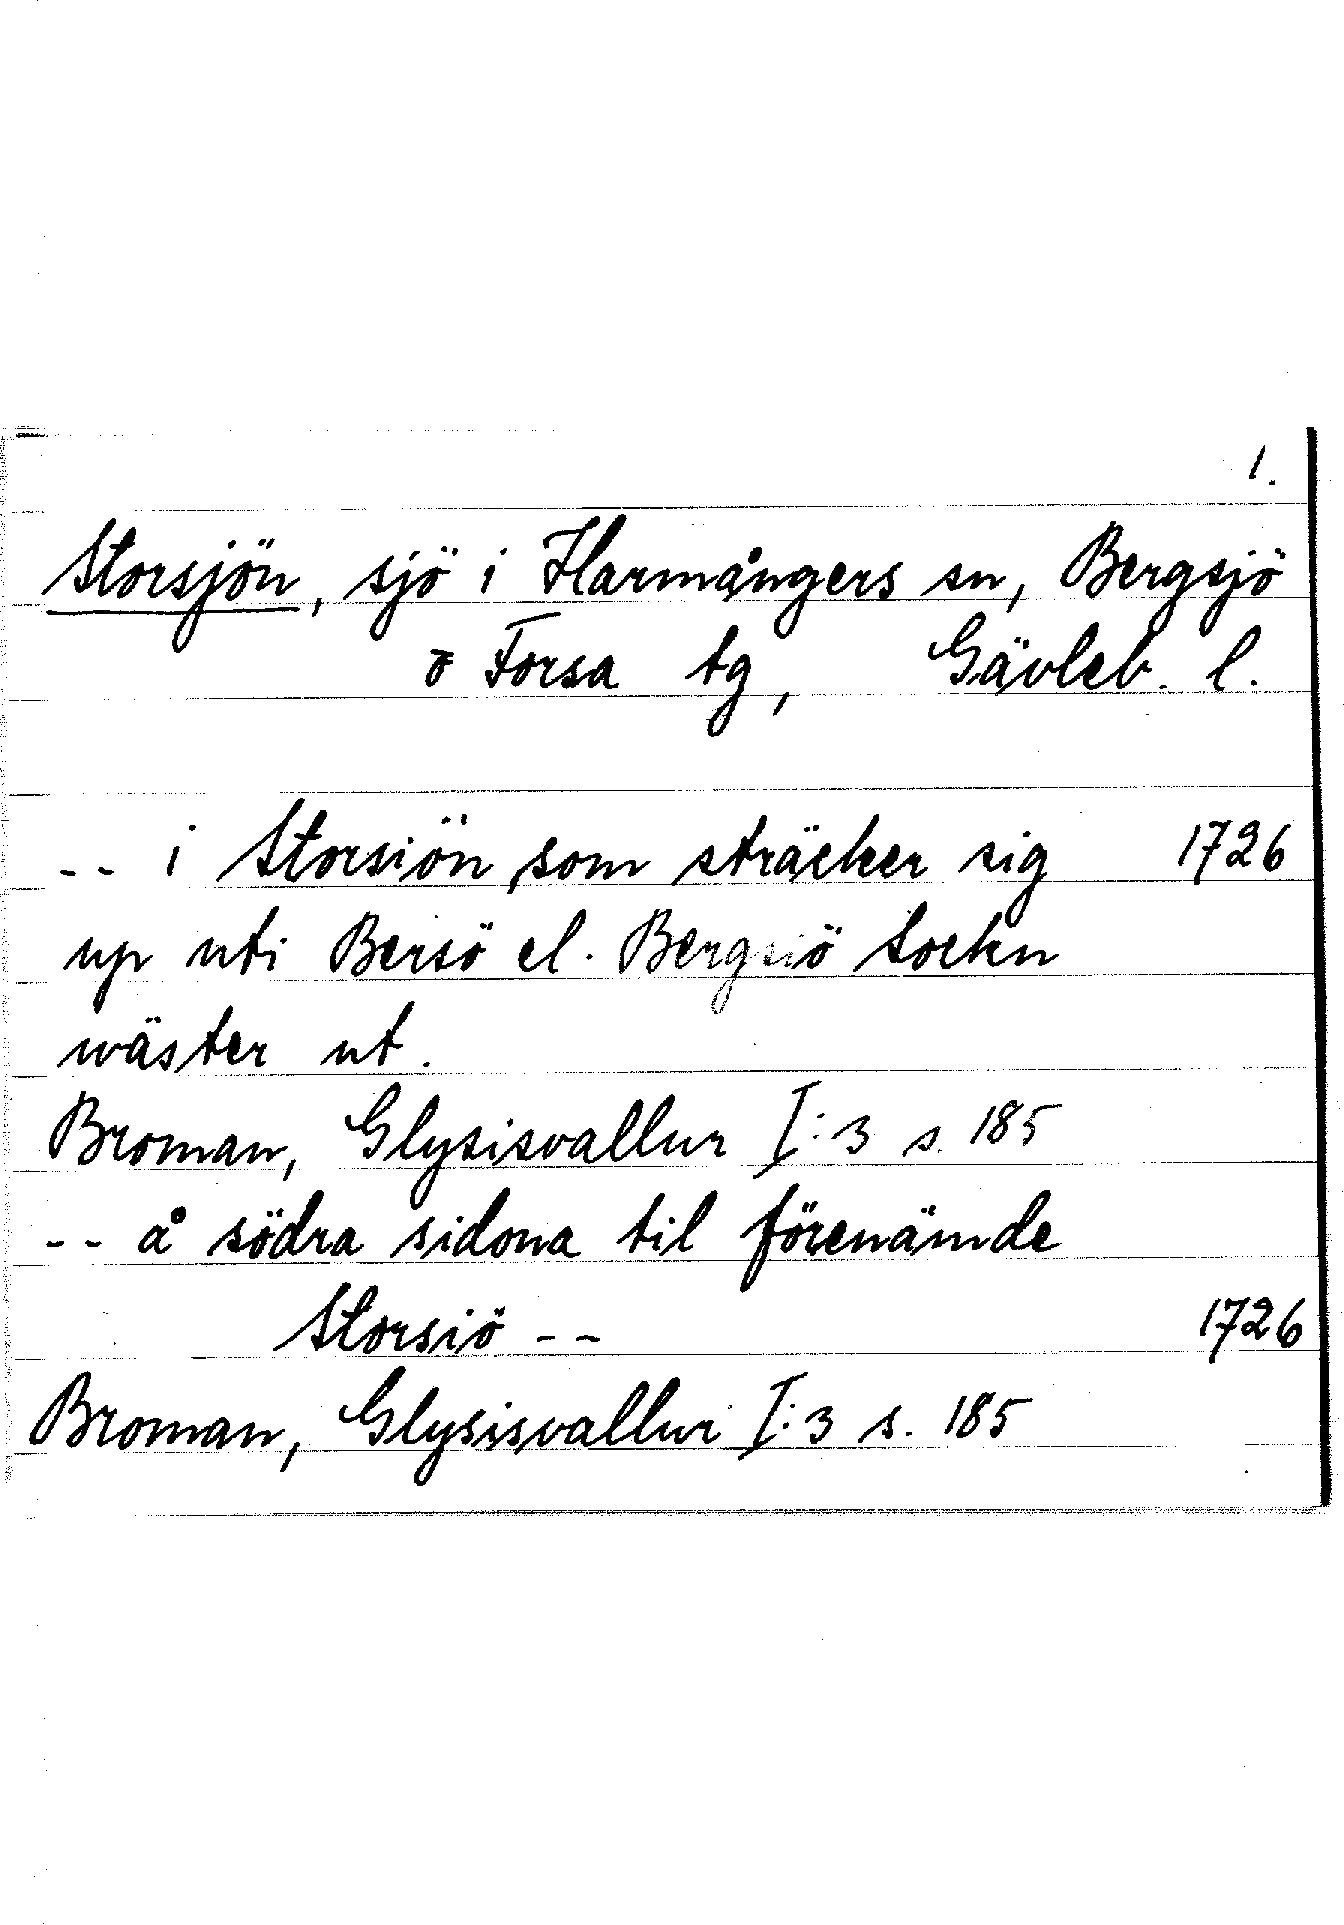 1.
Storsjön, sjö i Harmångers sn, Bergsjö
o Forsa tg, Gävleb. l.
-- i Storsiön, som sträcker sig 1726
up uti Bersö el. Bergsiö sockn
wäster ut.
Broman, Glysisvallur I:3 s. 185
-- å södra sidona til förenämde
Storsiö -- 1726
Broman, Glysisvallur I:3 s. 185